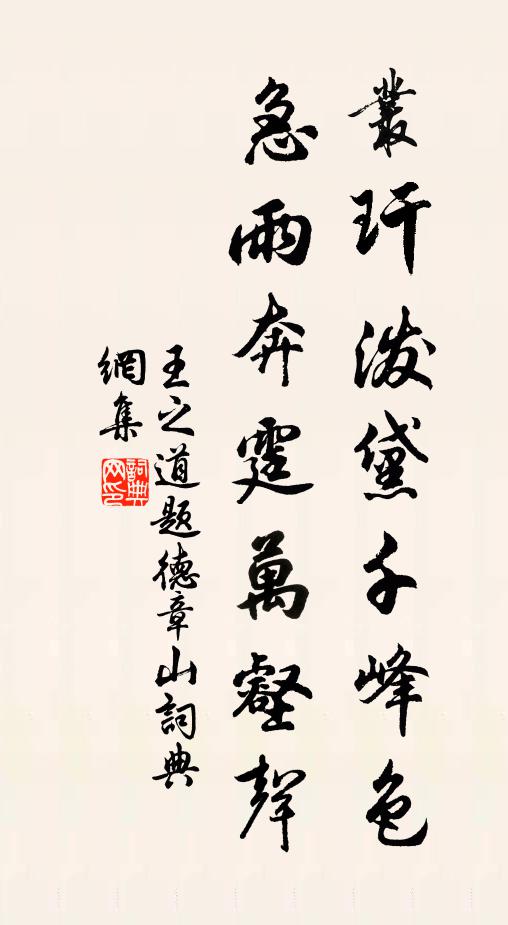 叢玕潑黛千峰色
急雨奔霆萬壑聲
王之道題德章山詞典
網集
詞典網印